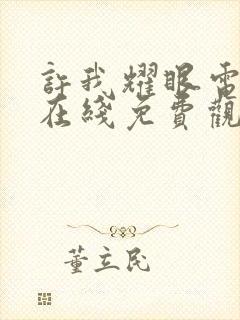 許我耀眼電
在綫免費觀
董立民